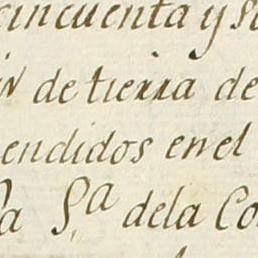 cincuenta y s
in de tierra de
endidos en el
a S.ª dela Co